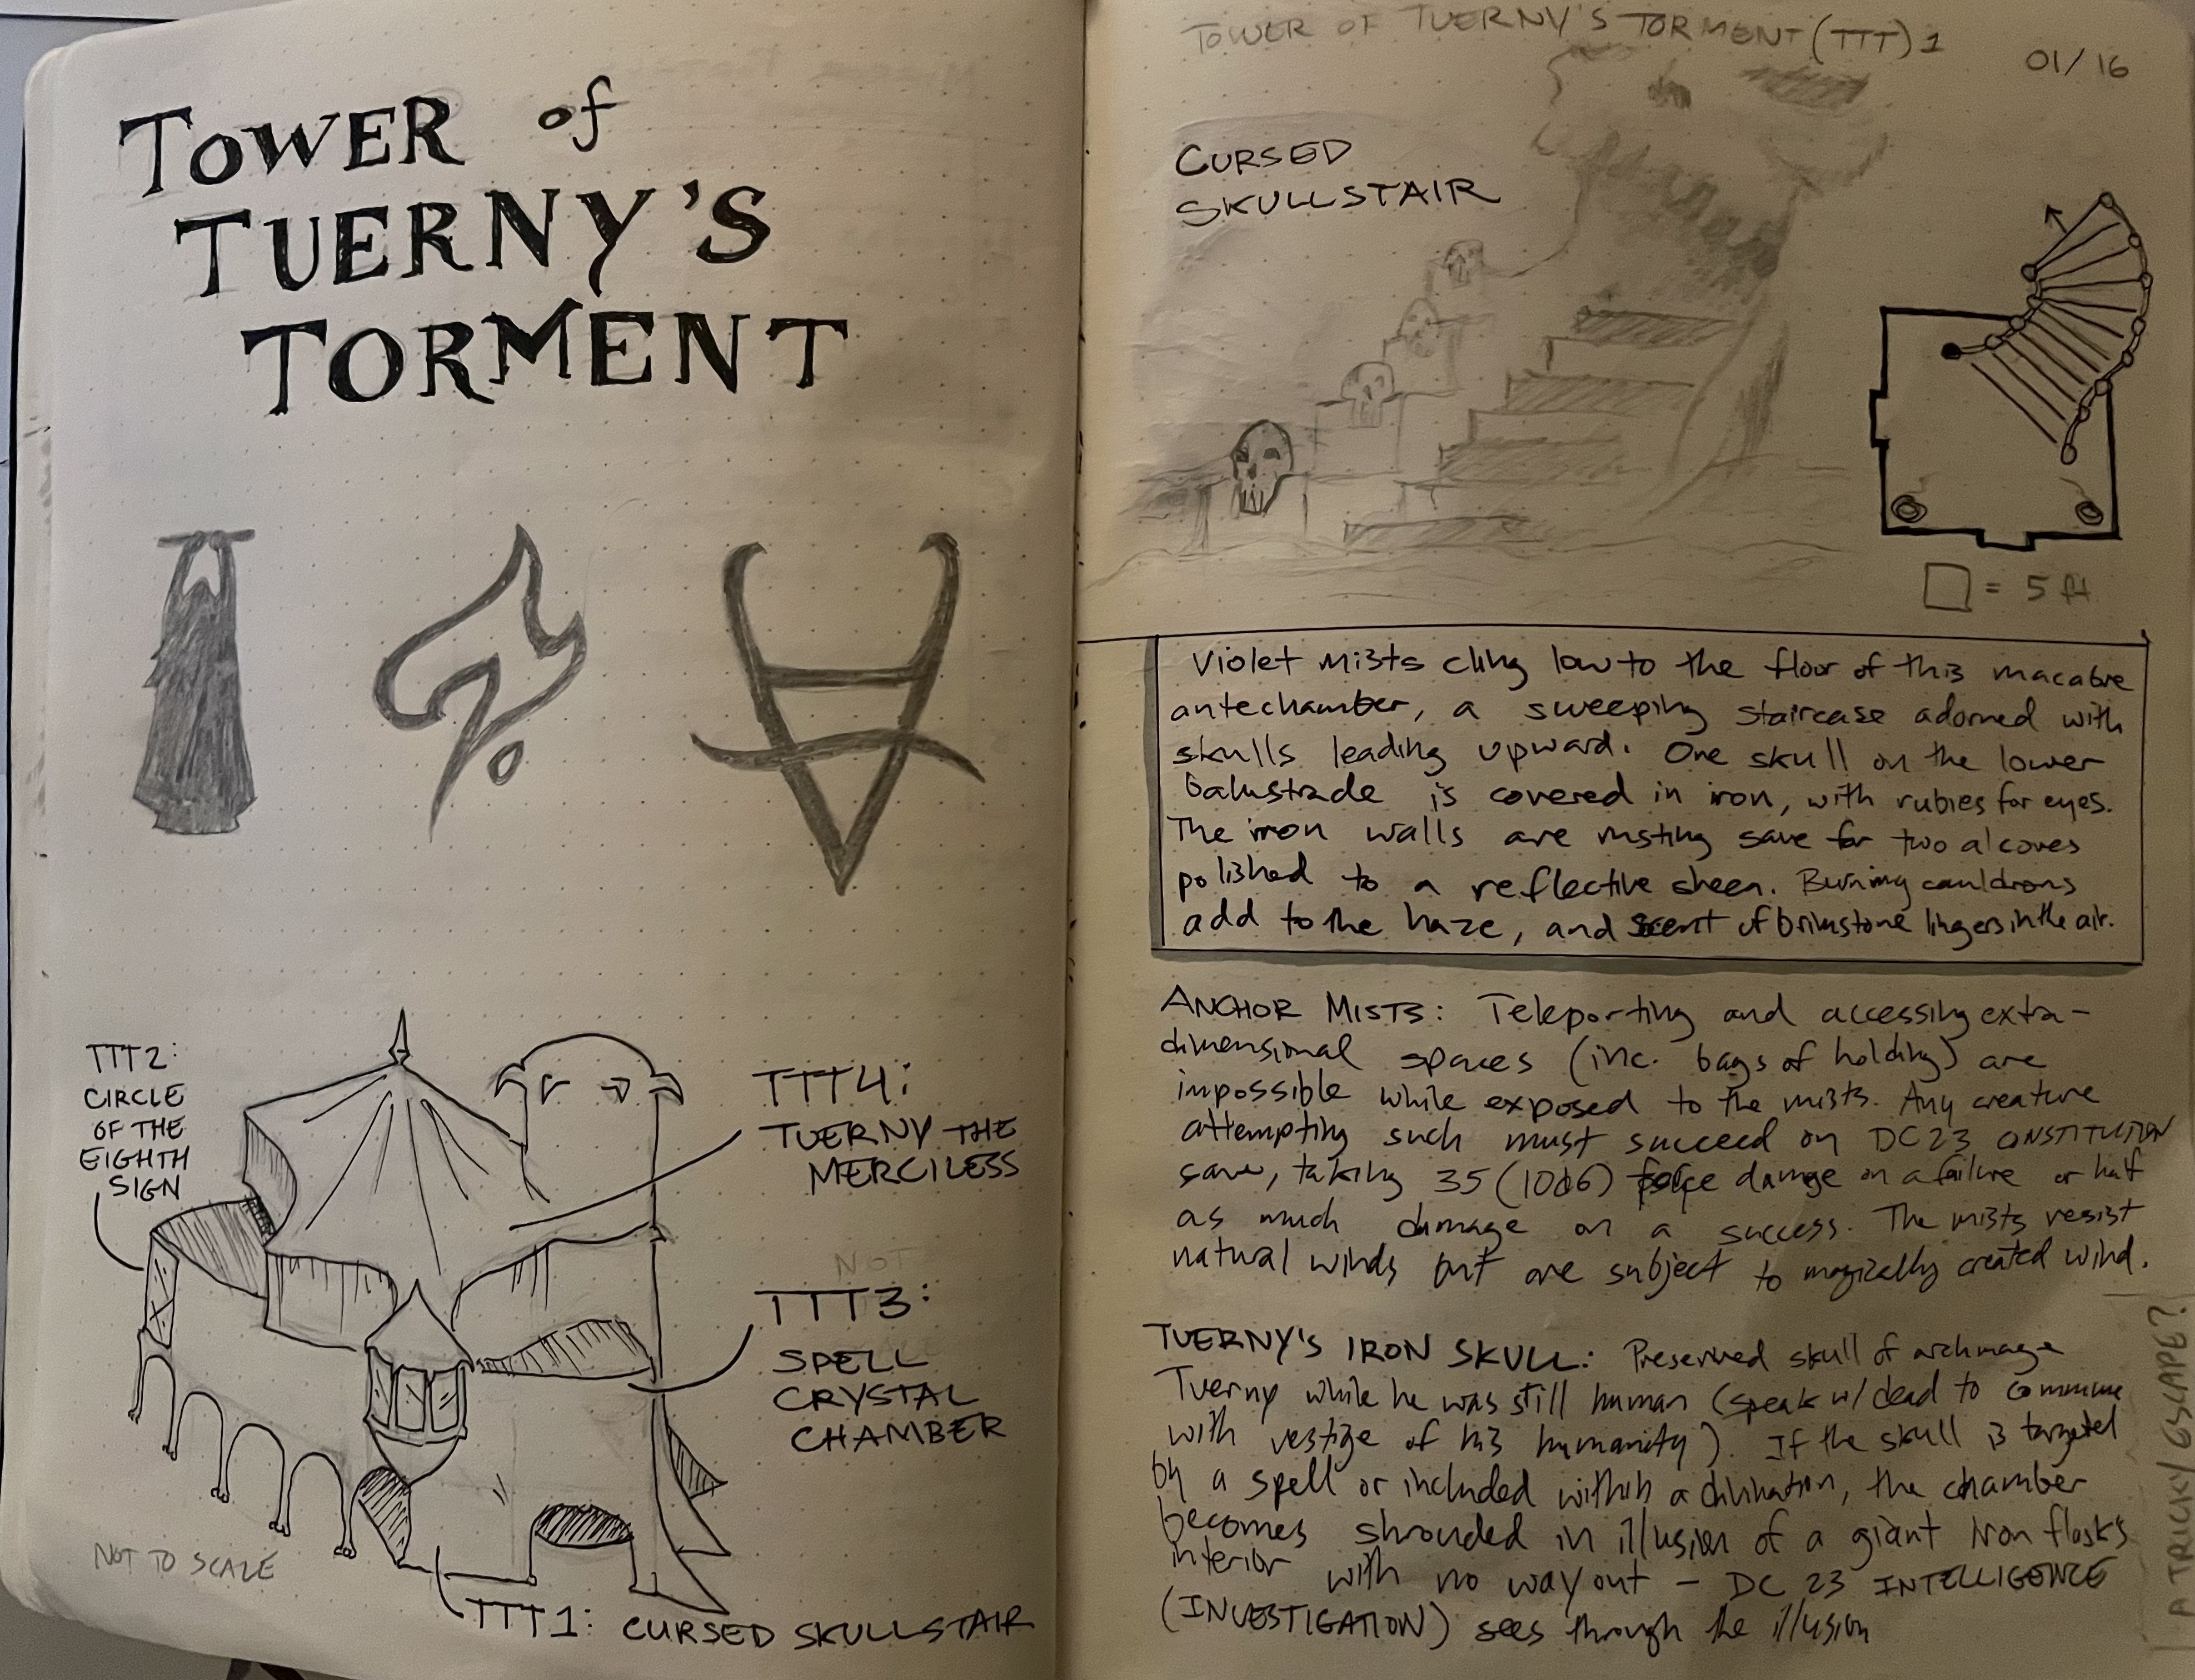 TOWER of
TUERNY'S
TORMENT
TTT2:
CIRCLE
OF THE
EIGHTH
SIGN
TTT4:
TUERNY THE
MERCILESS
NOT
TTT3:
SPELL
CRYSTAL
CHAMBER
NOT TO SCALE
TTT1: CURSED SKULLSTAIR
TOWER OF TUERNY'S TORMENT (TTT) 1
01/16
CURSED
SKULLSTAIR
= 5 ft
Violet mists cling low to the floor of this macabre
antechamber, a sweeping staircase adorned with
skulls leading upward. One skull on the lower
balustrade is covered in iron, with rubies for eyes.
The iron walls are rusting save for two alcoves
polished to a reflective sheen. Burning cauldrons
add to the haze, and scent of brimstone lingers in the air.
ANCHOR MISTS: Teleporting and accessing extra-
dimensional spaces (inc. bags of holding) are
impossible while exposed to the mists. Any creature
attempting such must succeed on DC 23 CONSTITUTION
save, taking 35 (10d6) force damage on a failure or half
as much damage on a success. The mists resist
natural winds but are subject to magically created wind.
TUERNY'S IRON SKULL: Preserved skull of archmage
Tuerny while he was still human (speak w/ dead to commune
with vestige of his humanity). If the skull is targeted
by a spell or included within a divination, the chamber
becomes shrouded in illusion of a giant iron flask's
interior with no way out – DC 23 INTELLIGENCE
(INVESTIGATION) sees through the illusion
A TRICKY ESCAPE?